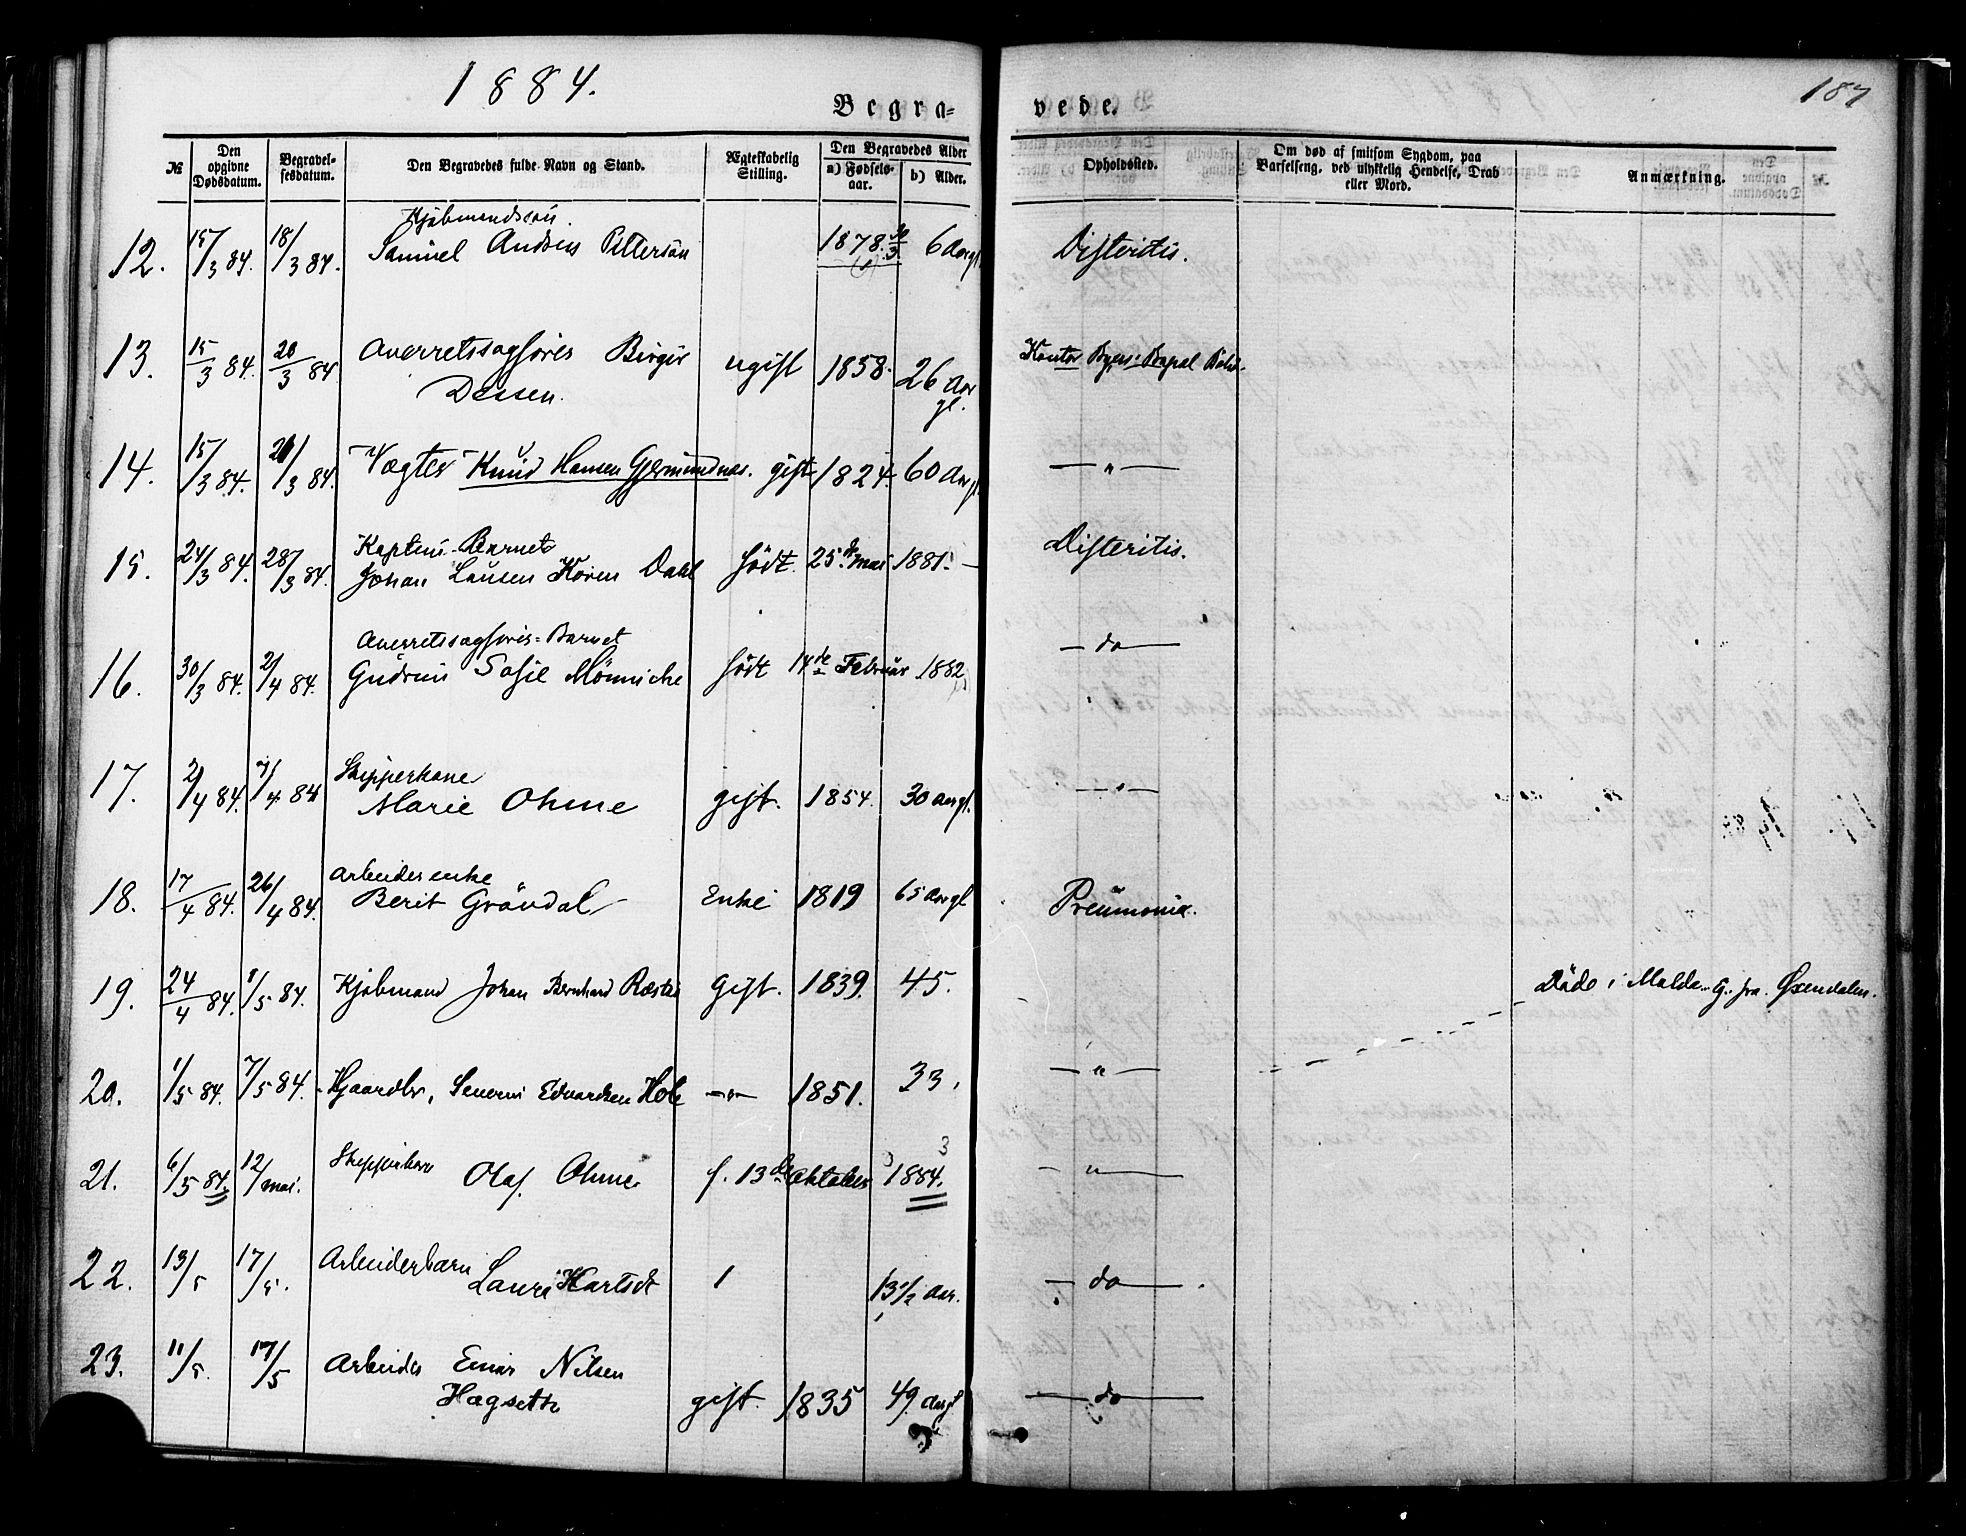 1884.
187
Begra= vede.
№ Den opgivne Dødsdatum. Begravelsesdatum. Den Begravedes fulde Navn og Stand. Ægteskabelig Stilling. Den Begravedes Alder a) Fødselsaar. b) Alder. Opholdssted. Om død af smitsom Sygdom, paa Barselseng, ved ulykkelig Hendelse, Drab eller Mord. Anmærkning.
Kjøbmandssøn
12. 15/3 84. 18/3 84. Samuel Pettersøn 1878. 6 aargl. Difteritis.
13. 15/3 84. 20/3 84 Overretssagfører Birger ugift 1858. 26 aar
Dessen. gl.
14. 15/3 84. 21/3 84. Vægter Knud Hansen Gjermundnes. gift 1824. 60 aargl. — " —
Kaptein-Barnet
15. 24/3 84. 28/3 84. Johan Koren Dahl født. 25de mai 1881. Difteritis.
Overretssagfører=Barnet
16. 30/3 84. 2/4 84. Gudrun Sofie Mønniche født 14de Februar 1882 — do —
Skipperkone
17. 2/4 84. 7/4 84 Marie Ohme gift. 1854. 30 aargl. — " —
Arbeiderenke
18. 17/4 84. 26/4 84. Berit Grøndal Enke 1819 65 aargl Pneumonia.
19. 24/4 84. 1/5 84. Kjøbmand Johan Bernhard Gift. 1839. 45. Døde i Molde. G. fra Øxendalen.
20. 1/5 84. 7/5 84. Gaardbr. Severin Edvardsen Hole — " — 1851. 33. — " —
21. 6/5 84. 12/mai. Skipperbarn Olaf Ohme f. 13de Oktober 1884. 3 — " —
22. 13/5 17/5. Arbeiderbarn 1 13 1/2 aar. — do — .
23. 11/5. 17/5 Arbeider Einar Nilsen
Hagsette gift. 1835 49 aargl — do —